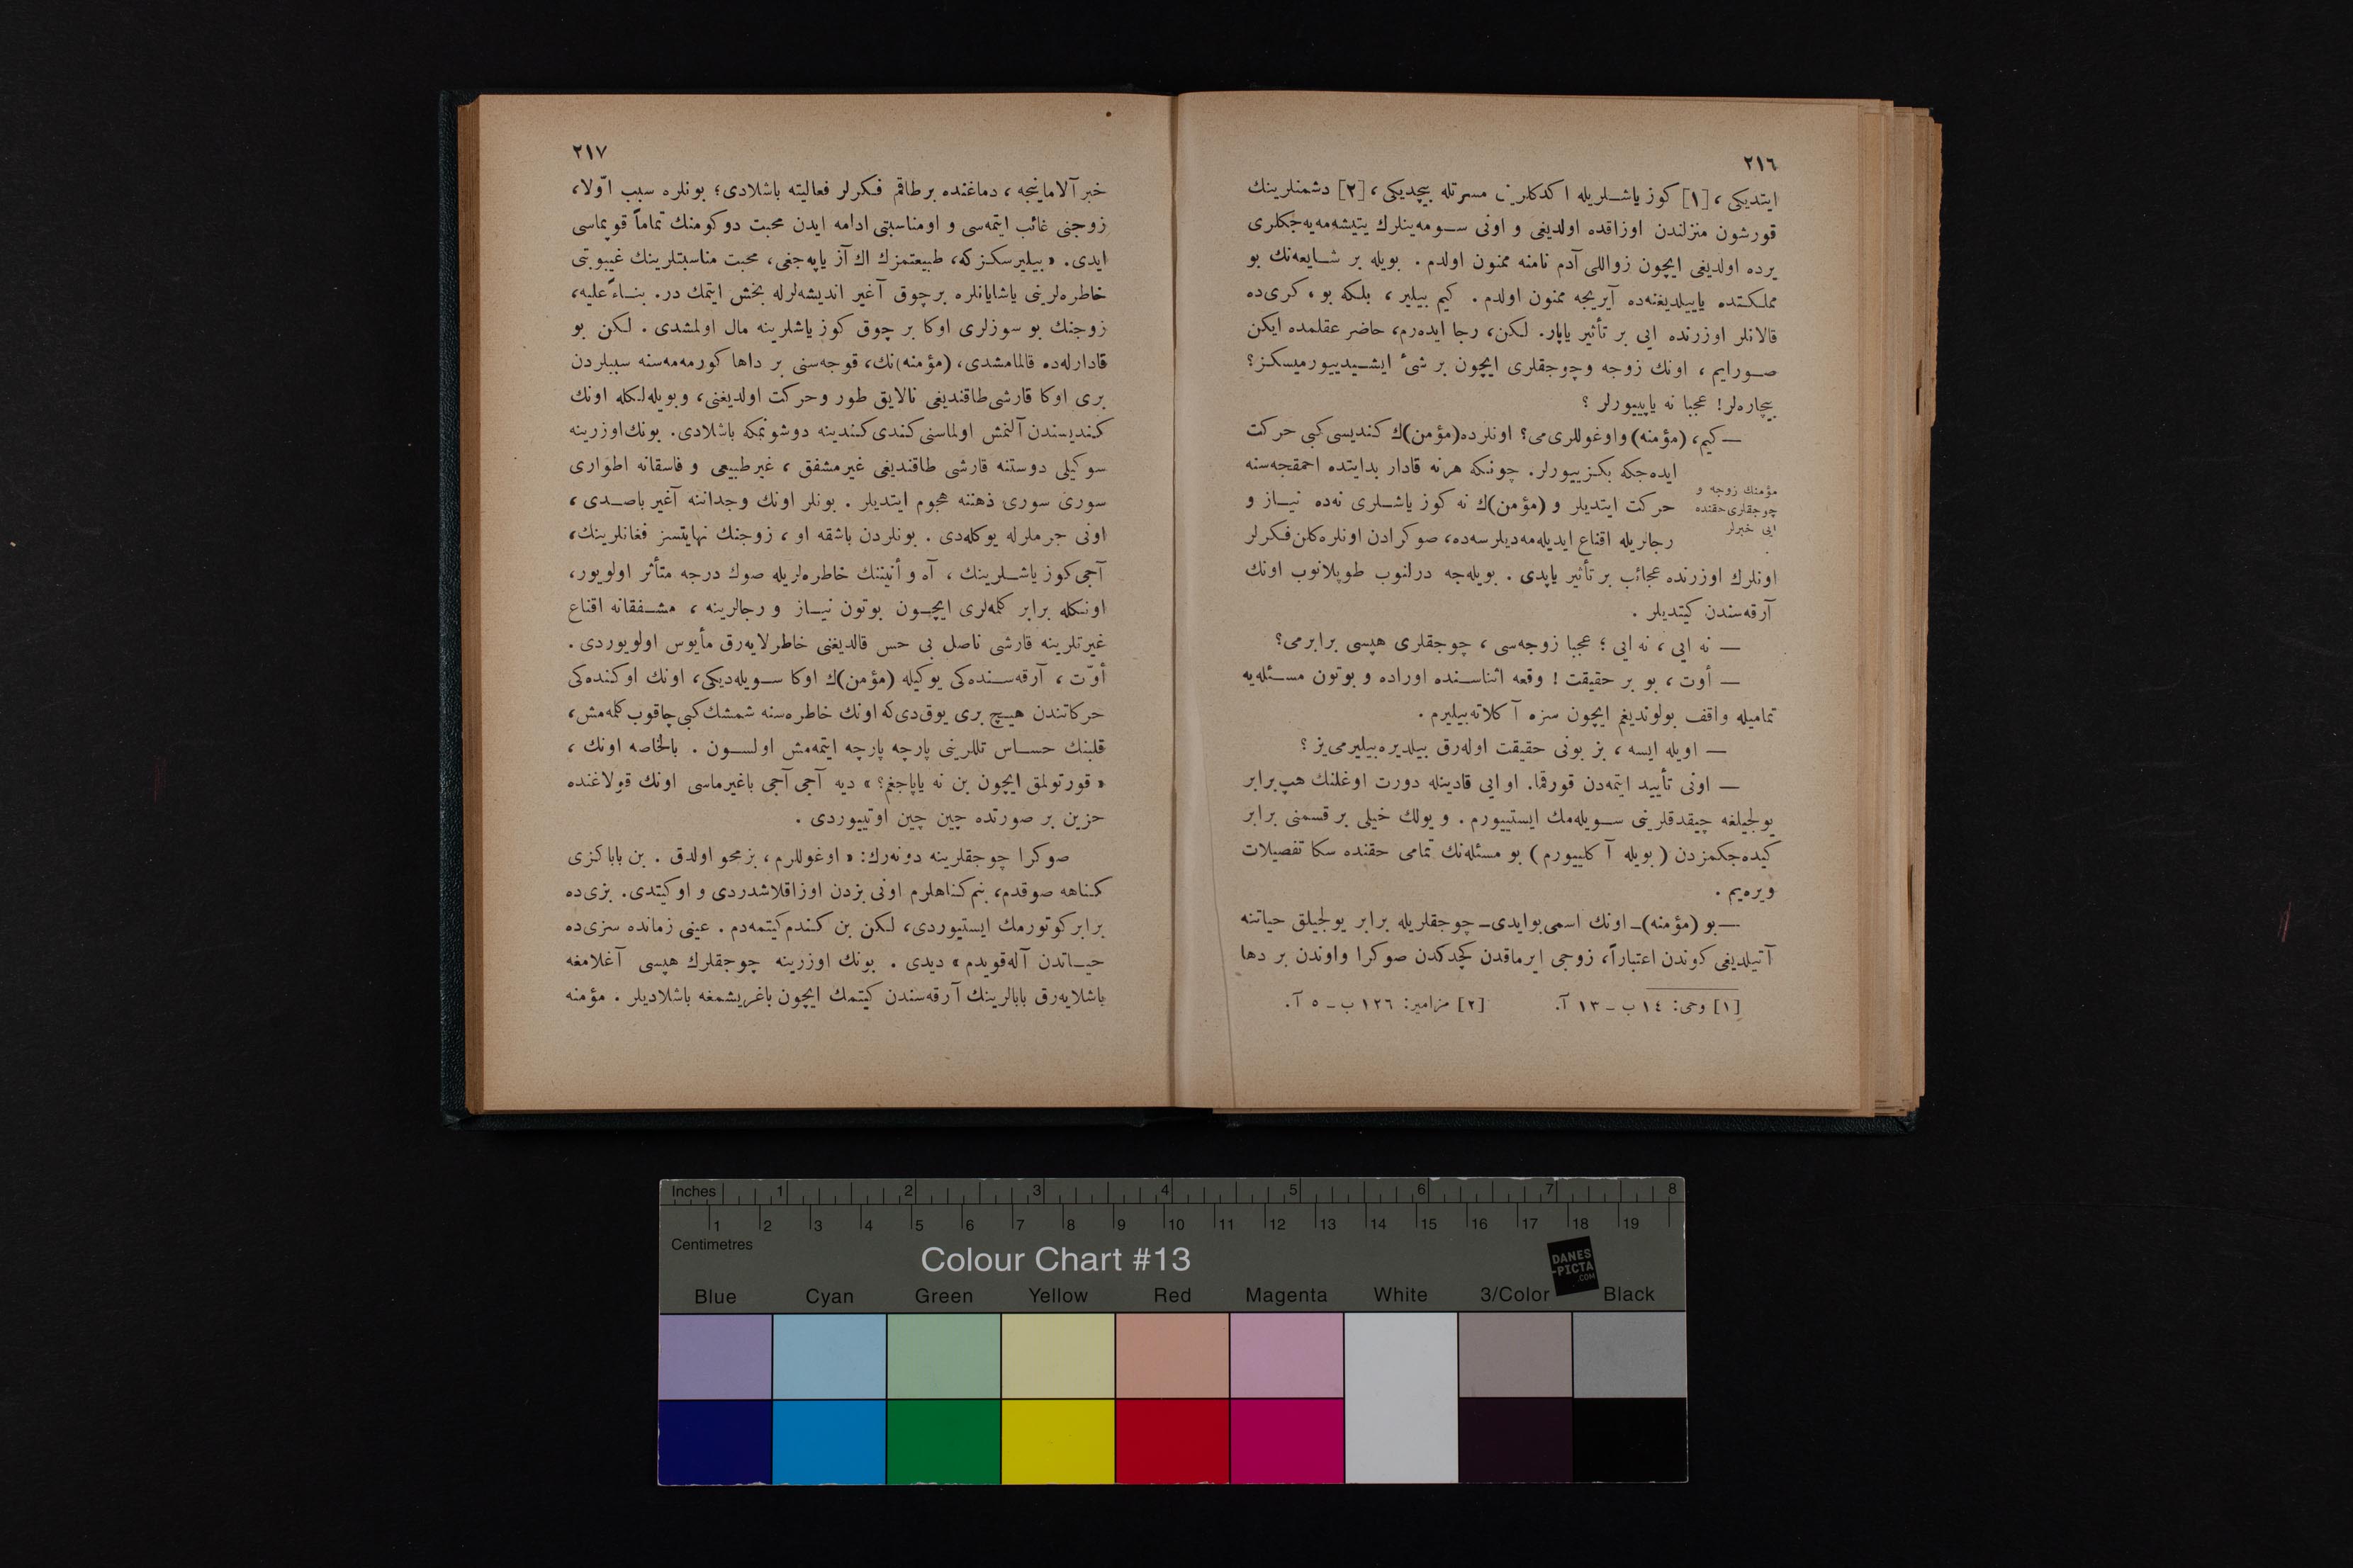 ٢١٦
ايتديكى ، [١] كوز ياشـلريله اكدكلرينى مسرتله بيچديكى، [٢] دشمنلرينك
قورشون منزلندن اوزاقده اولديغى و اونى سـومه‌ينلرك يتيشه‌مه‌يه‌جكلرى
يرده اولديغى ايچون زواللى آدم نامنه ممنون اولدم . بويله بر شـايعه‌نك بو
مملكتده ياييلديغنه‌ده آيريجه ممنون اولدم . كيم بيلير ، بلكه بو ، كرى‌ده
قالانلر اوزرنده ايى بر تأثير ياپار. لكن، رجا ايده‌رم، حاضر عقلمده ايكن
صـورايم ، اونك زوجه وچوجقلرى ايچون بر شئ ايشـيدييورميسكز؟
بيچاره‌لر! عجبا نه ياپييورلر ؟
— كيم، (مؤمنه) واوغوللرى‌مى؟ اونلرده (مؤمن)ك كنديسى كبى حركت
ايده‌جكه بكزييورلر. چونكه هرنه قادار بدايتده احمقجه‌سنه
مؤمنك زوجه و
چوجقلرى حقنده
ايى خبرلر
حركت ايتديلر و (مؤمن)ك نه كوز ياشـلرى نه‌ده نيـاز و
رجالريله اقناع ايديله‌مه‌ديلرسه‌ده، صوكرادن اونلره كلن فكرلر
اونلرك اوزرنده عجائب بر تأثير ياپدى . بويله‌جه درلنوب طوپلانوب اونك
آرقه‌سندن كيتديلر .
— نه ايى ، نه ايى ؛ عجبا زوجه‌سى ، چوجقلرى هپسى برابرمى؟
— أوت ، بو بر حقيقت ! وقعه اثناسـنده اوراده و بوتون مسـئله‌يه
تماميله واقف بولونديغم ايچون سزه آكلاته‌بيليرم .
— اويله ايسه ، بز بونى حقيقت اوله‌رق بيلديره‌بيليرمى‌يز ؟
— اونى تأييد ايتمه‌دن قورقما. او ايى قادينله دورت اوغلنك هپ برابر
يولجيلغه چيقدقلرينى سـويله‌مك ايستييورم . و يولك خيلى بر قسمنى برابر
كيده‌جكمزدن ( بويله آكلييورم ) بو مسئله‌نك تمامى حقنده سكا تفصيلات
ويره‌يم .
— بو (مؤمنه) ـ اونك اسمى بوايدى ـ چوجقلريله برابر يولجيلق حياتنه
آتيلديغى كوندن اعتباراً، زوجى ايرماقدن كچدكدن صوكرا واوندن بر دها
[١] وحى: ١٤ ب ـ ١٣ آ. [٢] مزامير: ١٢٦ ب ـ ٥ آ.
٢١٧
خبر آلامايينجه ، دماغنده بر طاقم فكرلر فعاليته باشلادى؛ بونلره سبب اوّلا،
زوجنى غائب ايتمه‌سى و اومناسبتى ادامه ايدن محبت دوكومنك تماماً قوپماسى
ايدى. « بيليرسكزكه، طبيعتمزك اك آز ياپه‌جغى، محبت مناسبتلرينك غيبوبتى
خاطره‌لرينى ياشايانلره برچوق آغير انديشه‌لرله بخش ايتمك در. بنـاءً عليه،
زوجنك بو سوزلرى اوكا بر چوق كوز ياشلرينه مال اولمشدى . لكن بو
قادارله‌ده قالمامشدى، (مؤمنه)نك، قوجه‌سنى بر داها كورمه‌مه‌سنه سببلردن
برى اوكا قارشى طاقنديغى نالايق طور وحركت اولديغنى، وبويله‌لكله اونك
كنديسندن آلنمش اولماسنى كندى كندينه دوشونمكه باشلادى. بونك اوزرينه
سوكيلى دوستنه قارشى طاقنديغى غير مشفق ، غير طبيعى و فاسقانه اطوارى
سورئ سورئ ذهننه هجوم ايتديلر . بونلر اونك وجداننه آغير باصـدى ،
اونى جرملرله يوكله‌دى . بونلردن باشقه او ، زوجنك نهايتسز فغانلرينك،
آجى كوز ياشـلرينك ، آه و أنيننك خاطره‌لريله صوك درجه متأثر اولويور،
اونكله برابر كلمه‌لرى ايچـون بوتون نيـاز و رجالرينه ، مشـفقانه اقناع
غيرتلرينه قارشى ناصل بى حس قالديغنى خاطرلايه‌رق مأيوس اولويوردى .
أوّت ، آرقه‌سـنده‌كى يوكيله (مؤمن)ك اوكا سـويله‌ديكى، اونك اوكنده‌كى
حركاتندن هيـچ برى يوق‌دى‌كه اونك خاطره‌سنه شمشك كبى چاقوب كلمه‌مش،
قلبنك حسـاس تللرينى پارچه پارچه ايتمه‌مش اولسـون . بالخاصه اونك ،
« قورتولمق ايچون بن نه ياپاجغم؟ » ديه آجى آجى باغيرماسى اونك قولاغنده
حزين بر صورتده چين چين اوتييوردى .
صوكرا چوجقلرينه دونه‌رك: « اوغوللرم ، بز محو اولدق . بن باباكزى
كناهه صوقدم، بنم كناهلرم اونى بزدن اوزاقلاشدردى و او كيتدى. بزى‌ده
برابر كوتورمك ايستيوردى، لكن بن كندم كيتمه‌دم . عينى زمانده سزى‌ده
حيـاتدن آله‌قويدم » ديدى . بونك اوزرينه چوجقلرك هپسى آغلامغه
باشلايه‌رق بابالرينك آرقه‌سندن كيتمك ايچون باغريشمغه باشلاديلر . مؤمنه
Inches 1 2 3 4 5 6 7 8
1 2 3 4 5 6 7 8 9 10 11 12 13 14 15 16 17 18 19
Centimetres
Colour Chart #13
DANES
-PICTA
.COM
Blue Cyan Green Yellow Red Magenta White 3/Color Black